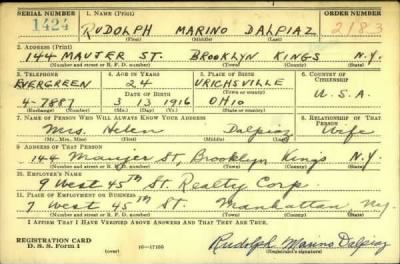 SERIAL NUMBER 1. NAME (Print) ORDER NUMBER
1424 RUDOLPH MARINO DALPIAZ 2183
(First) (Middle) (Last)
2. ADDRESS (Print)
144 MAUJER ST. BROOKLYN KINGS N.Y.
(Number and street or R. F. D. number) (Town) (County) (State)
3. TELEPHONE 4. AGE IN YEARS 5. PLACE OF BIRTH 6. COUNTRY OF CITIZENSHIP
EVERGREEN 24 URICHSVILLE
DATE OF BIRTH (Town or county) U.S.A.
4-7887 3 13 1916 OHIO
(Exchange) (Number) (Mo.) (Day) (Yr.) (State or country)
7. NAME OF PERSON WHO WILL ALWAYS KNOW YOUR ADDRESS 8. RELATIONSHIP OF THAT PERSON
Mrs. Helen Dalpiaz Wife
(Mr., Mrs., Miss) (First) (Middle) (Last)
9. ADDRESS OF THAT PERSON
144 Maujer St, Brooklyn Kings N.Y.
(Number and street or R. F. D. number) (Town) (County) (State)
10. EMPLOYER'S NAME
9 West 45th St. Realty Corp.
11. PLACE OF EMPLOYMENT OR BUSINESS
9 West 45th St. Manhattan Ny.
(Number and street or R. F. D. number) (Town) (County) (State)
I AFFIRM THAT I HAVE VERIFIED ABOVE ANSWERS AND THAT THEY ARE TRUE.
REGISTRATION CARD
D. S. S. Form 1 (over) 16-17105 Rudolph Marino Dalpiaz